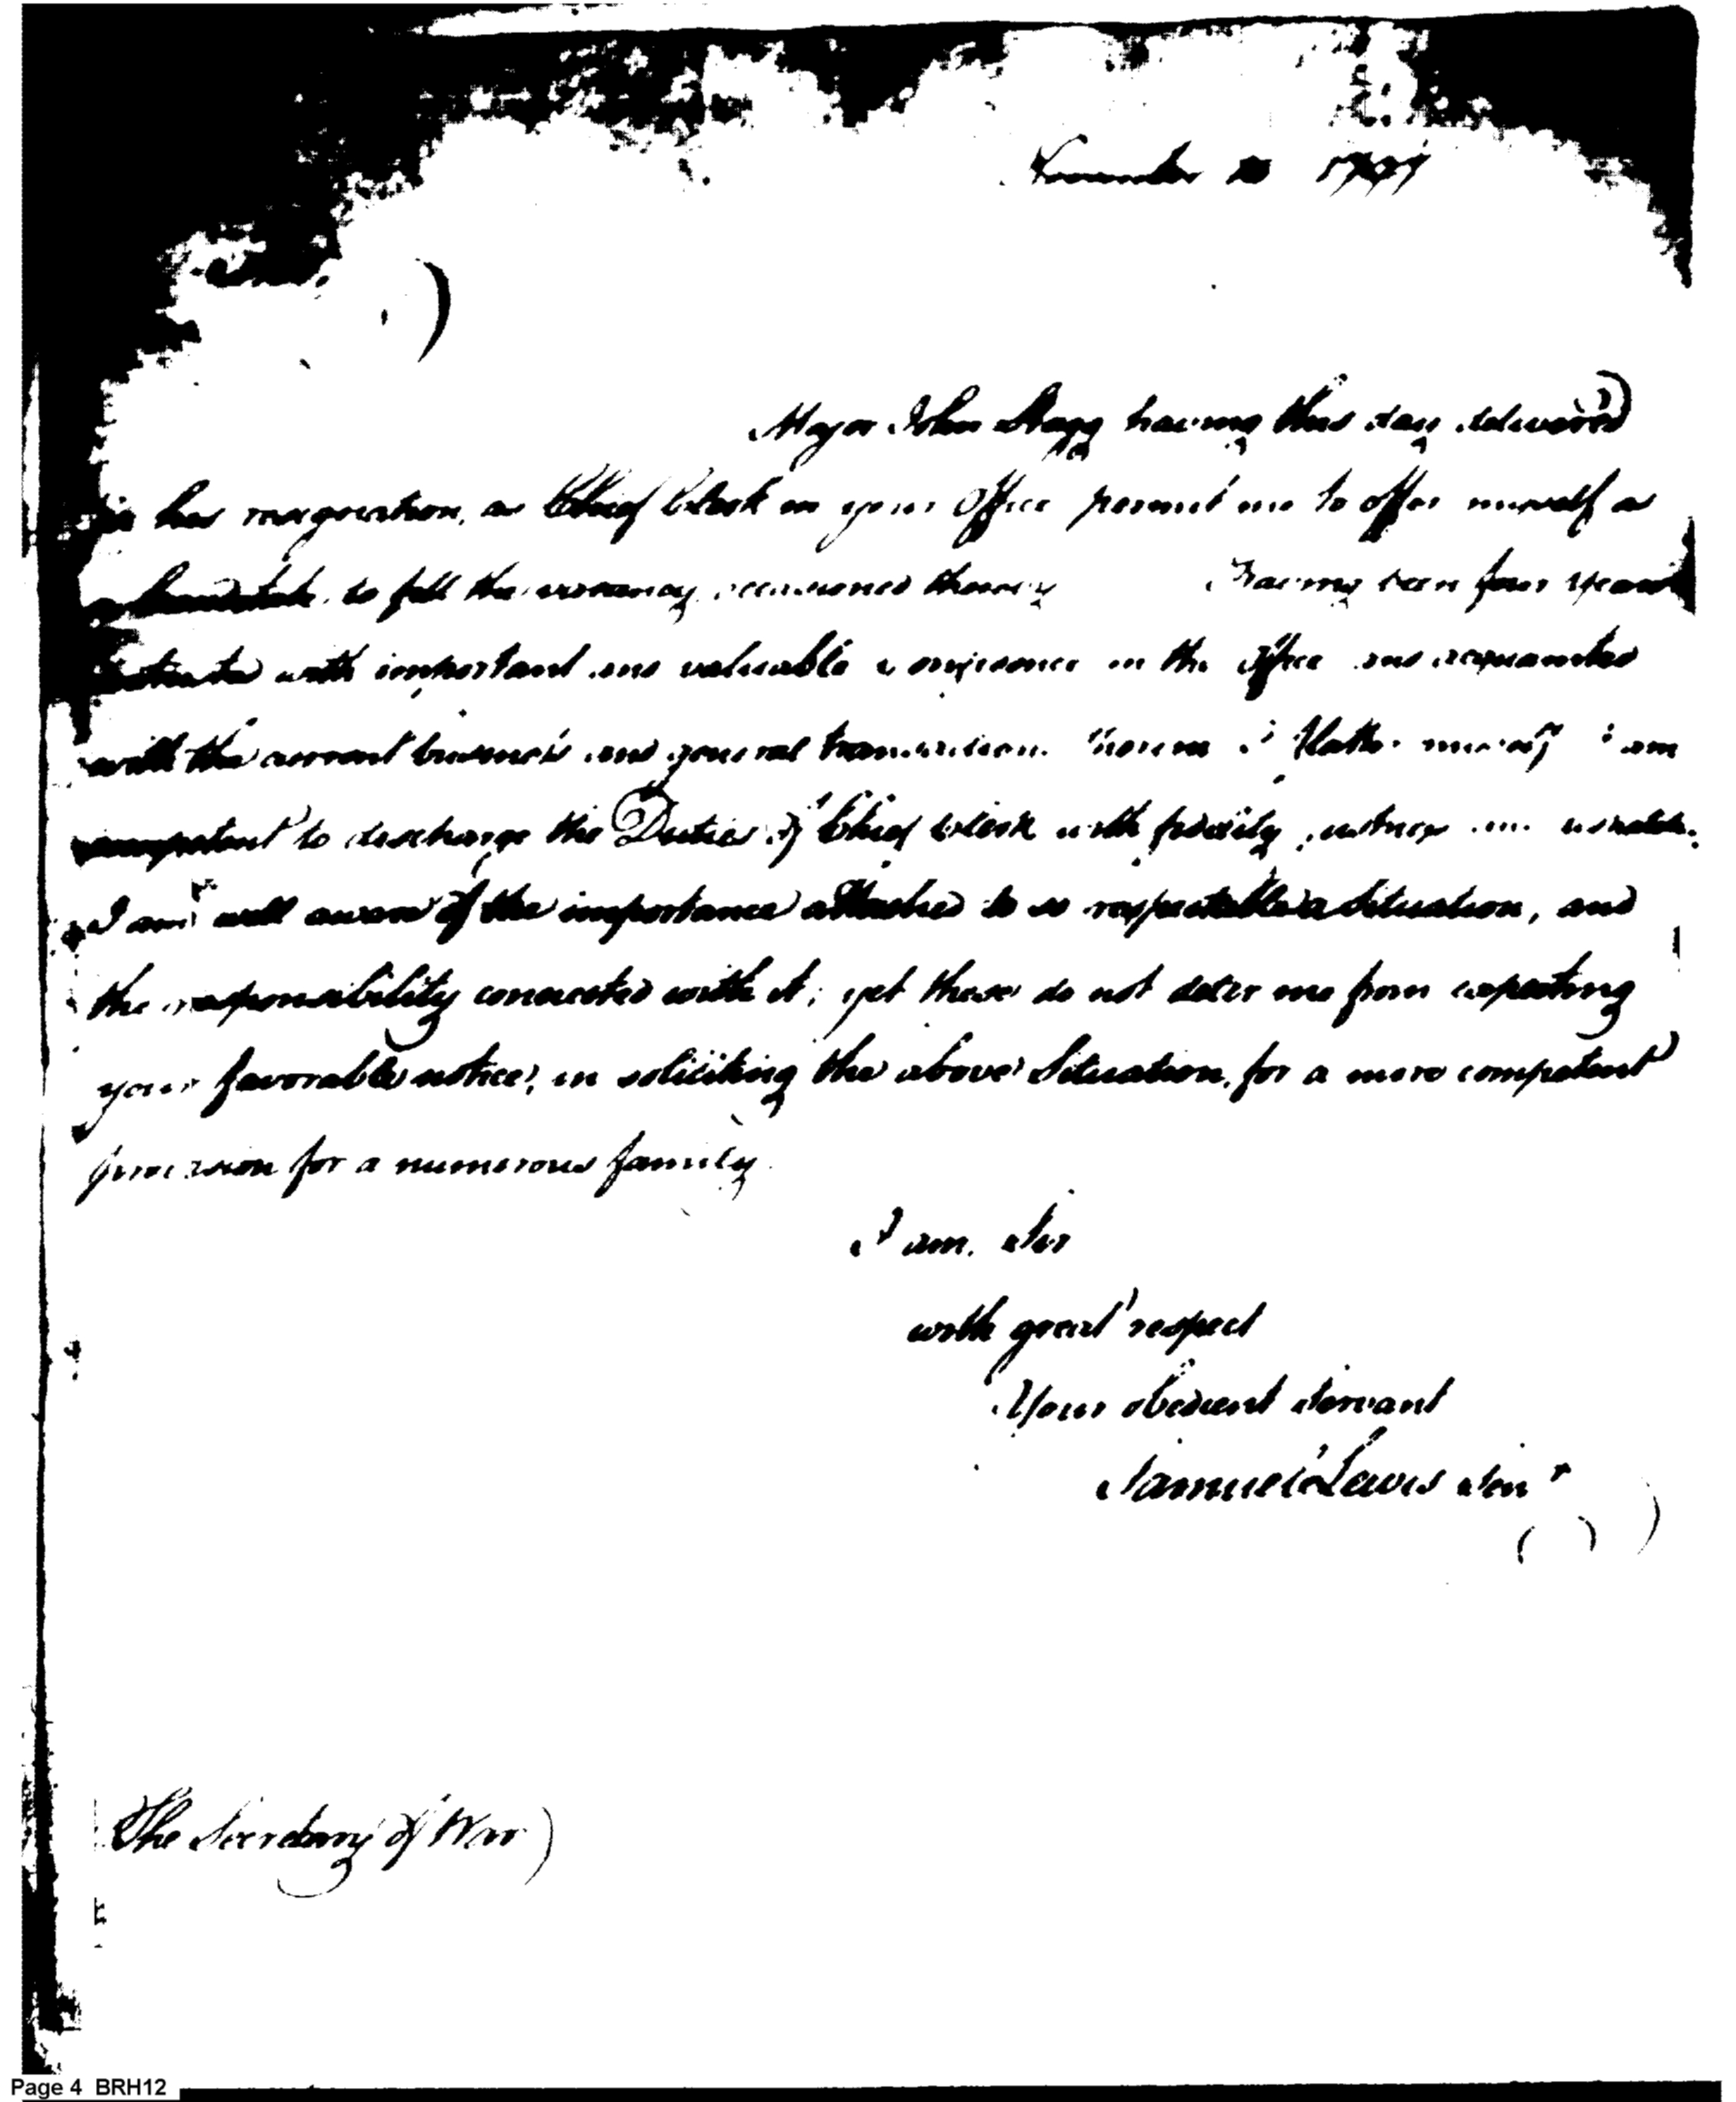 1797
Major John Stagg having this day delivered
in his resignation, as Chief Clerk in your Office permit me to offer myself a
to fill the vacancy occasioned thereby Having been four years
with important and valuable in the Office and acquainted
with the current business and general transactions I flatter myself I am
competent to discharge the Duties of Chief Clerk with fidelity
I am well aware of the importance attached to so respectable a Situation, and
the responsibility connected with it; yet these do not deter me from expecting
your favorable notice, in soliciting the above Situation, for a more competent
provision for a numerous family.
I am, Sir
with great respect
Your obedient Servant
Samuel Lewis Senr
The Secretary of War
Page 4 BRH12